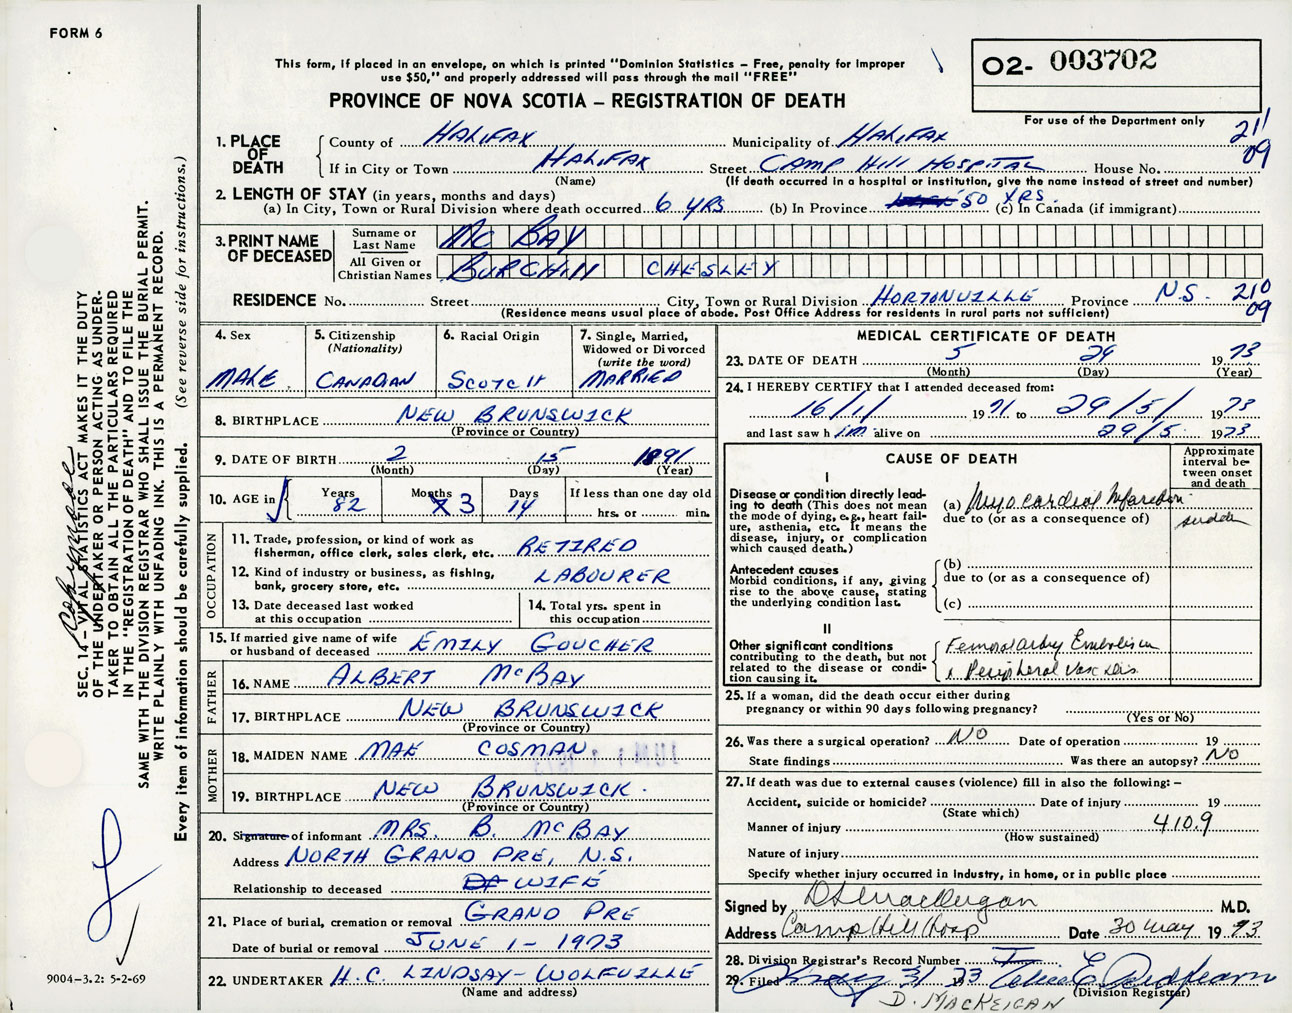 FORM 6
This form, if placed in an envelope, on which is printed "Dominion Statistics – Free, penalty for improper
use $50," and properly addressed will pass through the mail "FREE"
PROVINCE OF NOVA SCOTIA – REGISTRATION OF DEATH
O2- 003702
For use of the Department only
211
09
1. PLACE OF DEATH
County of HALIFAX Municipality of HALIFAX
If in City or Town HALIFAX Street CAMP HILL HOSPITAL House No.
(Name) (If death occurred in a hospital or institution, give the name instead of street and number)
2. LENGTH OF STAY (in years, months and days)
(a) In City, Town or Rural Division where death occurred 6 YRS (b) In Province 50 YRS. (c) In Canada (if immigrant)
3. PRINT NAME OF DECEASED
Surname or Last Name MC BAY
All Given or Christian Names BURCHILL CHESLEY
RESIDENCE No. Street City, Town or Rural Division HORTONVILLE Province N.S. 210
09
(Residence means usual place of abode. Post Office Address for residents in rural parts not sufficient)
4. Sex
MALE
5. Citizenship
(Nationality)
CANADIAN
6. Racial Origin
SCOTCH
7. Single, Married,
Widowed or Divorced
(write the word)
MARRIED
8. BIRTHPLACE NEW BRUNSWICK
(Province or Country)
9. DATE OF BIRTH 2 15 1891
(Month) (Day) (Year)
10. AGE in Years 82 Months 3 Days 14 If less than one day old
hrs. or min.
OCCUPATION
11. Trade, profession, or kind of work as
fisherman, office clerk, sales clerk, etc. RETIRED
12. Kind of industry or business, as fishing,
bank, grocery store, etc. LABOURER
13. Date deceased last worked
at this occupation
14. Total yrs. spent in
this occupation
15. If married give name of wife
or husband of deceased EMILY GOUCHER
FATHER
16. NAME ALBERT McBAY
17. BIRTHPLACE NEW BRUNSWICK
(Province or Country)
MOTHER
18. MAIDEN NAME MAE COSMAN
19. BIRTHPLACE NEW BRUNSWICK.
(Province or Country)
20. Signature of informant MRS. B. McBAY
Address NORTH GRAND PRE, N.S.
Relationship to deceased WIFE
21. Place of burial, cremation or removal GRAND PRE
Date of burial or removal JUNE 1 - 1973
22. UNDERTAKER H.C. LINDSAY - WOLFVILLE
(Name and address)
MEDICAL CERTIFICATE OF DEATH
23. DATE OF DEATH 5 29 1973
(Month) (Day) (Year)
24. I HEREBY CERTIFY that I attended deceased from:
16/1/ 1971 to 29/5/ 1973
and last saw h im alive on 29/5 1973
CAUSE OF DEATH
Approximate
interval be-
tween onset
and death
I
Disease or condition directly lead-
ing to death (This does not mean
the mode of dying, e.g., heart fail-
ure, asthenia, etc. It means the
disease, injury, or complication
which caused death.)
(a) Myocardial Infarction
due to (or as a consequence of)
sudden
Antecedent causes
Morbid conditions, if any, giving
rise to the above cause, stating
the underlying condition last.
(b)
due to (or as a consequence of)
(c)
II
Other significant conditions
contributing to the death, but not
related to the disease or condi-
tion causing it.
Femoral artery Embolism
& Peripheral Vasc dis.
25. If a woman, did the death occur either during
pregnancy or within 90 days following pregnancy?
(Yes or No)
26. Was there a surgical operation? NO Date of operation 19
State findings Was there an autopsy? NO
27. If death was due to external causes (violence) fill in also the following: –
Accident, suicide or homicide? Date of injury 19
(State which)
Manner of injury 410.9
(How sustained)
Nature of injury
Specify whether injury occurred in industry, in home, or in public place
Signed by M.D.
Address Camp Hill Hosp Date 30 May 1973
28. Division Registrar's Record Number
29. Filed May 31 1973
(Division Registrar)
D. MACKEIGAN
SEC. 14 – VITAL STATISTICS ACT MAKES IT THE DUTY
OF THE UNDERTAKER OR PERSON ACTING AS UNDER-
TAKER TO OBTAIN ALL THE PARTICULARS REQUIRED
IN THE "REGISTRATION OF DEATH" AND TO FILE THE
SAME WITH THE DIVISION REGISTRAR WHO SHALL ISSUE THE BURIAL PERMIT.
WRITE PLAINLY WITH UNFADING INK. THIS IS A PERMANENT RECORD.
Every item of information should be carefully supplied. (See reverse side for instructions.)
9004-3.2: 5-2-69